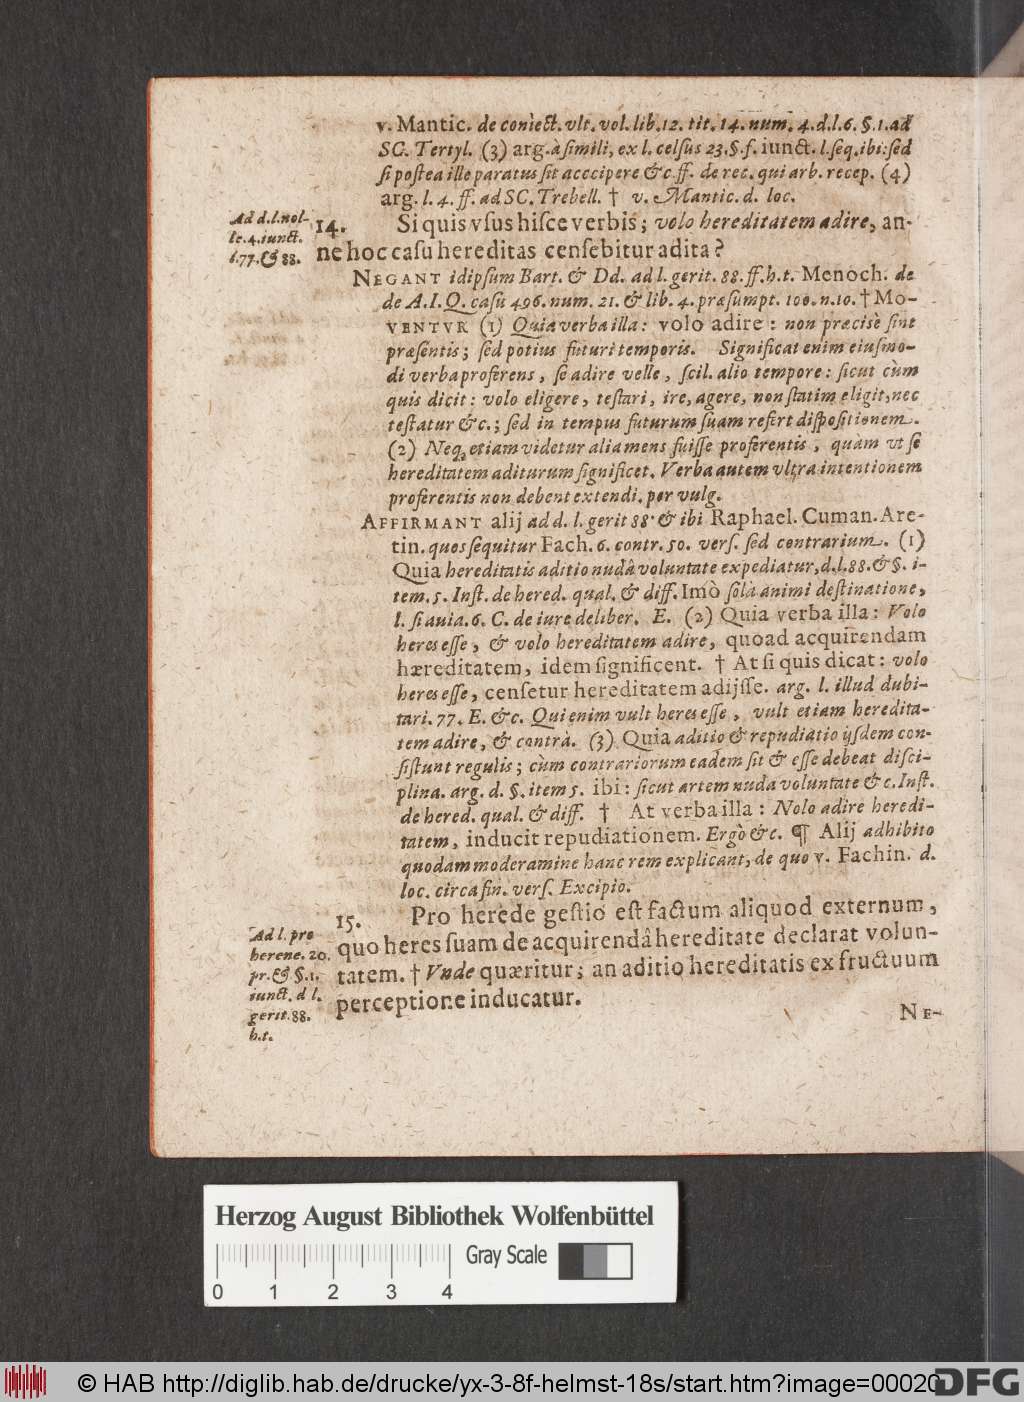 v. Mantic. de coniect. vlt. vol. lib. 12. tit. 14. num. 4. d. l. 6. §. 1. ad
SC. Tertyl. (3) arg. à simili, ex l. celsus 23. §. f. iunct. l. seq. ibi: sed
si postea ille paratus sit acccipere &c. ff. de rec. qui arb. recep. (4)
arg. l. 4. ff. ad SC. Trebell. † v. Mantic. d. loc.
Ad d. l. nol-
le. 4. iunct.
l. 77. & 88.
14. Si quis vsus hisce verbis; volo hereditatem adire, an-
ne hoc casu hereditas censebitur adita?
NEGANT idipsum Bart. & Dd. ad l. gerit. 88. ff. h. t. Menoch. de
de A. I. Q. casu 496. num. 21. & lib. 4. præsumpt. 100. n. 10. † MO-
VENTVR (1) Quia verba illa: volo adire: non præcisè sint
præsentis; sed potius futuri temporis. Significat enim eiusmo-
di verba proferens, se adire velle, scil. alio tempore: sicut cùm
quis dicit: volo eligere, testari, ire, agere, non statim eligit, nec
testatur &c.; sed in tempus futurum suam refert dispositionem.
(2) Neq; etiam videtur alia mens fuisse proferentis, quàm vt se
hereditatem aditurum significet. Verba autem vltra intentionem
proferentis non debent extendi. per vulg.
AFFIRMANT alij ad d. l. gerit 88. & ibi Raphael. Cuman. Are-
tin. quos sequitur Fach. 6. contr. 50. vers. sed contrarium. (1)
Quia hereditatis aditio nudâ voluntate expediatur, d. l. 88. & §. i-
tem. 5. Inst. de hered. qual. & diff. Imò solâ animi destinatione,
l. si auia. 6. C. de iure deliber. E. (2) Quia verba illa: Volo
heres esse, & volo hereditatem adire, quoad acquirendam
hæreditatem, idem significent. † At si quis dicat: volo
heres esse, censetur hereditatem adijsse. arg. l. illud dubi-
tari. 77. E. &c. Qui enim vult heres esse, vult etiam heredita-
tem adire, & contrà. (3) Quia aditio & repudiatio ijsdem con-
sistunt regulis; cùm contrariorum eadem sit & esse debeat disci-
plina. arg. d. §. item 5. ibi: sicut artem nuda voluntate &c. Inst.
de hered. qual. & diff. † At verba illa: Nolo adire heredi-
tatem, inducit repudiationem. Ergò &c. ¶ Alij adhibito
quodam moderamine hanc rem explicant, de quo v. Fachin. d.
loc. circa fin. vers. Excipio.
Ad l. pro
herene. 20.
pr. & §. 1.
iunct. d l.
gerit. 88.
h. t.
15. Pro herede gestio est factum aliquod externum,
quo heres suam de acquirendâ hereditate declarat volun-
tatem. † Vnde quæritur; an aditio hereditatis ex fructuum
perceptione inducatur.
NE-
Herzog August Bibliothek Wolfenbüttel
0 1 2 3 4
Gray Scale
© HAB http://diglib.hab.de/drucke/yx-3-8f-helmst-18s/start.htm?image=00020
DFG